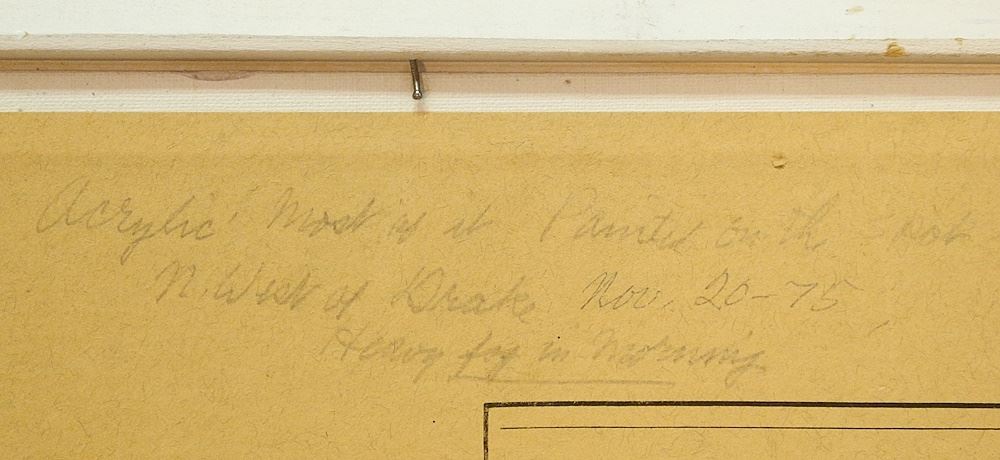 Acrylic' Most of it Painted on th
N. West of Drake Nov. 20-75
Heavy fog in Morning